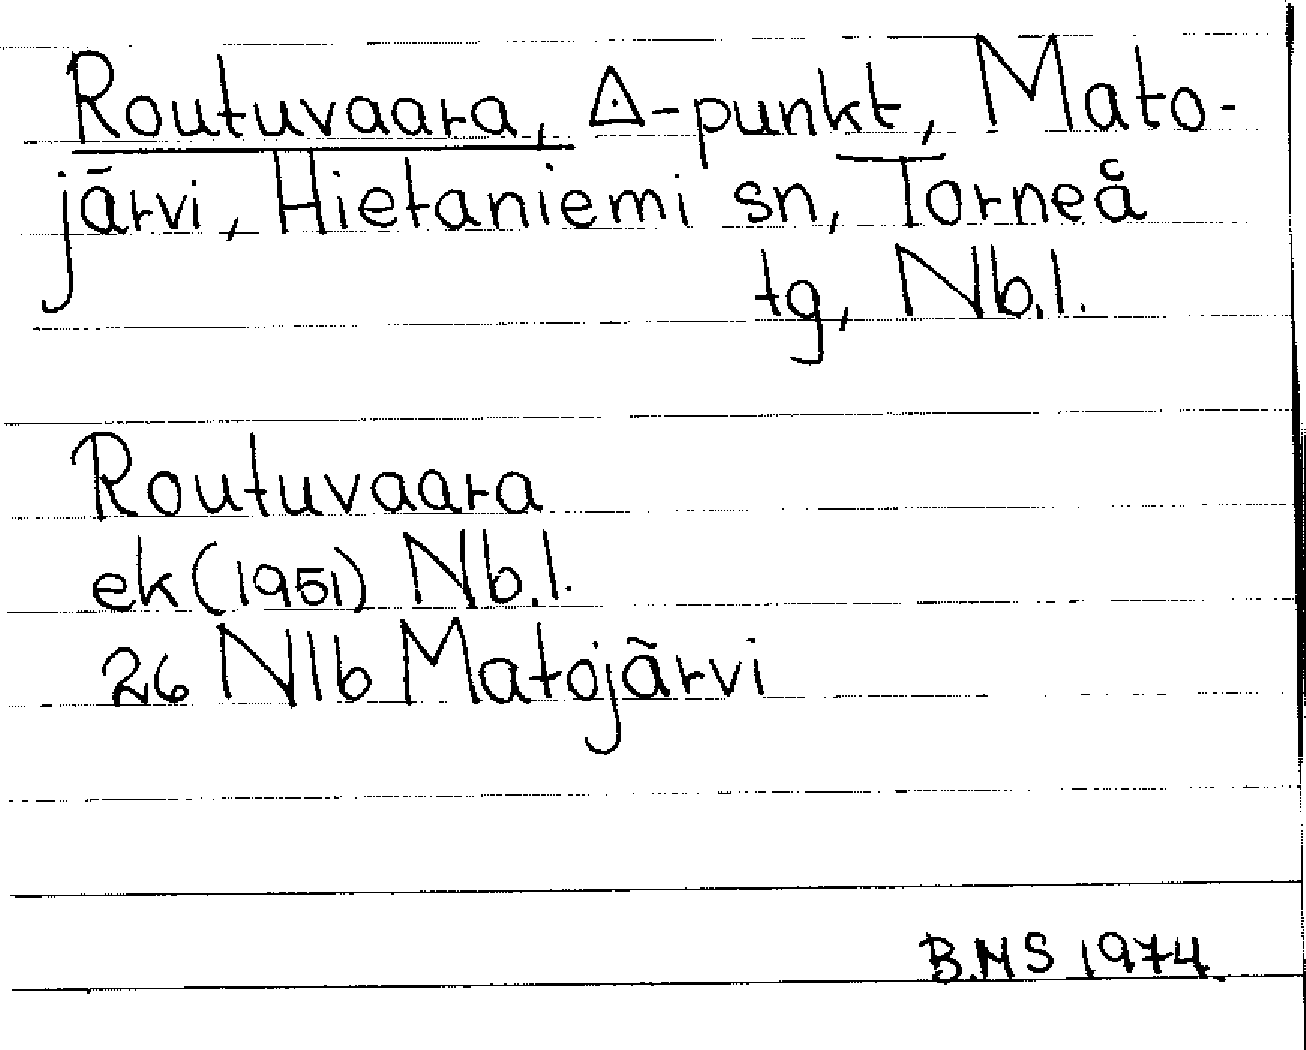 Routuvaara, △-punkt, Mato-
järvi, Hietaniemi sn, Torneå
tg, Nb.l.
Routuvaara
ek (1951) Nb.l.
26 Nlb Matojärvi
B.MS 1974